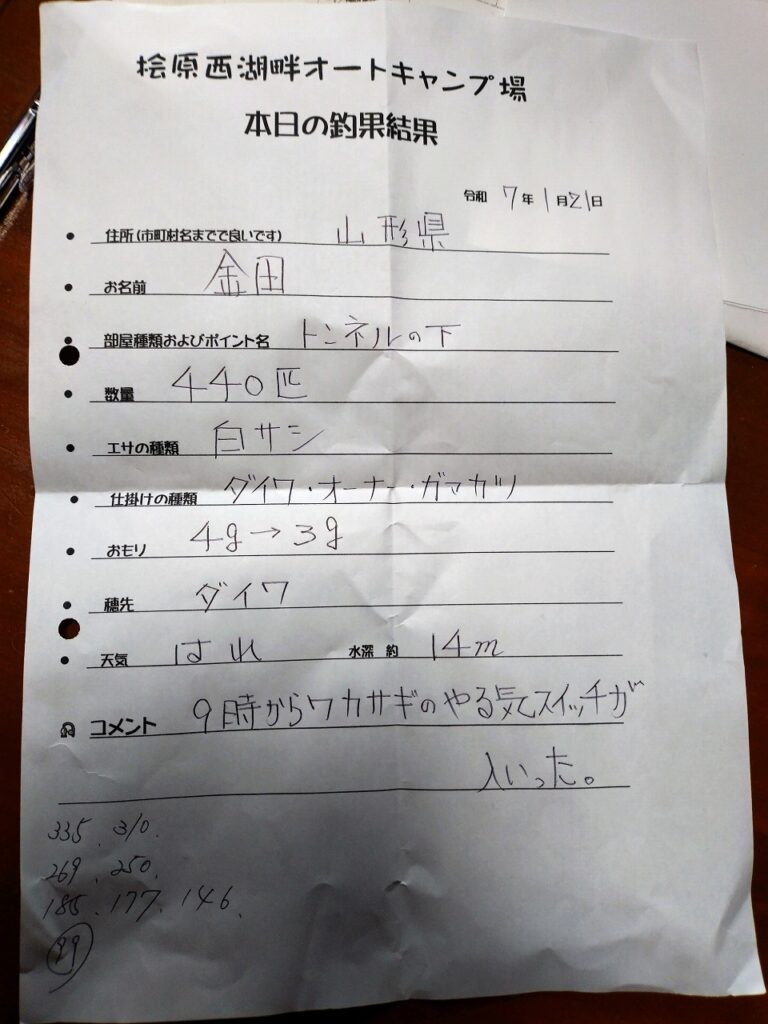 桧原西湖畔オートキャンプ場
本日の釣果結果
令和 7年 1月21日
住所(市町村名までで良いです) 山形県
お名前 金田
部屋種類およびポイント名 トンネルの下
数量 440匹
エサの種類 白サシ
仕掛けの種類 ダイワ・オーナー・ガマカツ
おもり 4g→3g
穂先 ダイワ
天気 はれ 水深 約 14m
コメント 9時からワカサギのやる気スイッチが
入いった。
335、310、
269、250、
185、177、146、